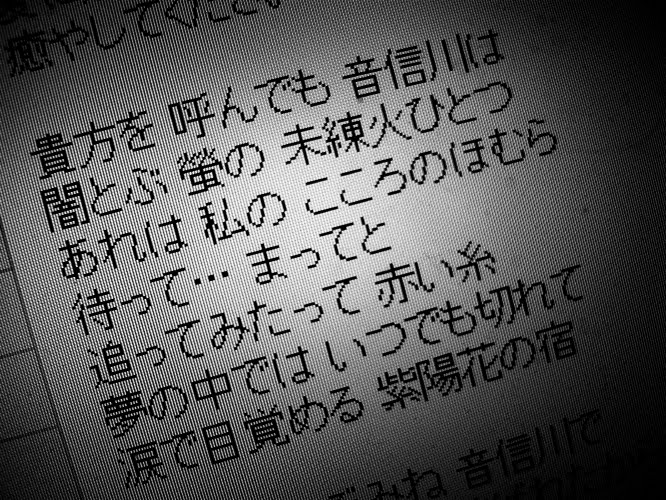 癒やしてください
貴方を 呼んでも 音信川は
闇とぶ 螢の 未練火ひとつ
あれは 私の こころのほむら
待って… まってと
追ってみたって 赤い糸
夢の中では いつでも切れて
涙で目覚める 紫陽花の宿
みね 音信川で